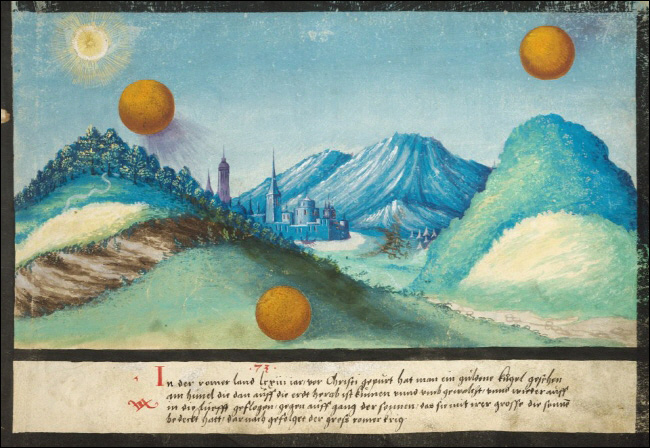 73
In der romer land lxxiii iar vor Christi gepurt hat man ein guldene kugel gesehen
am himel die dan auff die erdt herab ist kumen vnnd vmb gewalzt vnnd wieder auff
in die lufft geflogen gegen auff gang der sonnen das sie mit irer grosse die sonne
bedeckt hatt darnach gefolget der gros romer krig